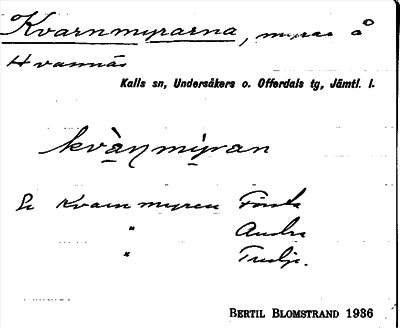 Kvarnmyrarna, myrar å
Hvannås
Kalls sn, Undersåkers o. Offerdals tg, Jämtl. l.
kvàṇmi̩ran
Kvarnmyren Första
" Andra
" Tredje.
BERTIL BLOMSTRAND 1936